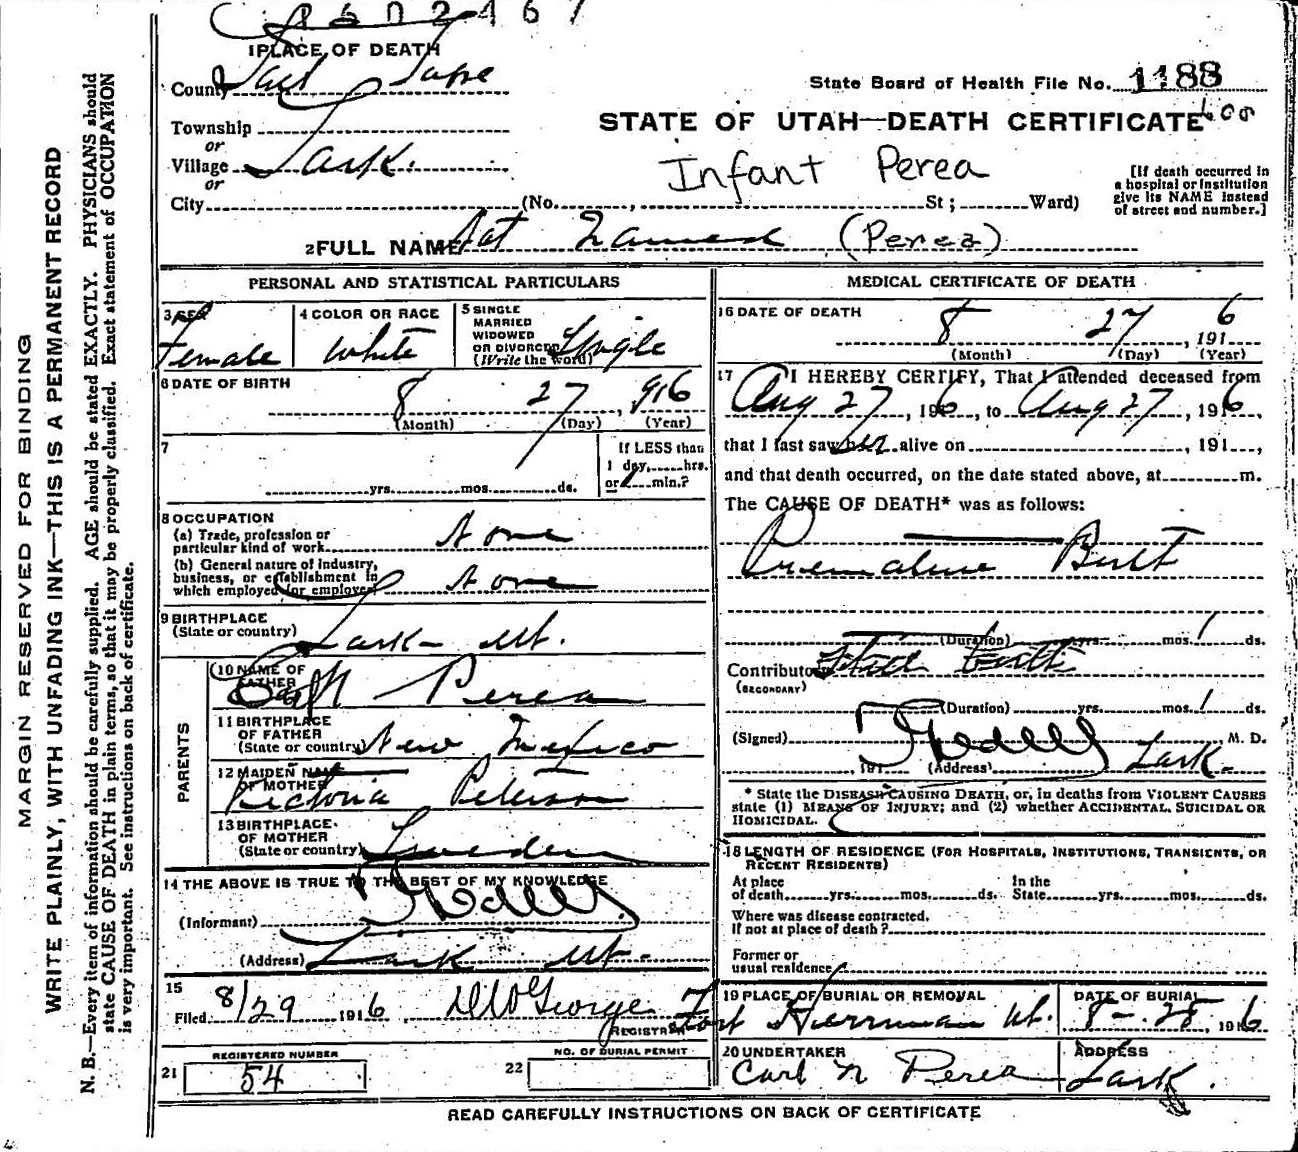 1 PLACE OF DEATH
County Salt Lake
State Board of Health File No. 1188
Township
STATE OF UTAH—DEATH CERTIFICATE
or
Village Lark.
Infant Perea
or
City (No. , St ; Ward)
[If death occurred in
a hospital or institution
give its NAME instead
of street and number.]
2 FULL NAME Not Named (Perea)
PERSONAL AND STATISTICAL PARTICULARS
3 SEX
Female
4 COLOR OR RACE
White
5 SINGLE
MARRIED
WIDOWED
OR DIVORCED
(Write the word) Single
6 DATE OF BIRTH
8 27, 916
(Month) (Day) (Year)
7
yrs. mos. ds.
If LESS than
1 day, hrs.
or min.?
8 OCCUPATION
(a) Trade, profession or
particular kind of work None
(b) General nature of industry,
business, or establishment in
which employed (or employer) None
9 BIRTHPLACE
(State or country) Lark - Ut.
PARENTS
10 NAME OF
FATHER
Perea
11 BIRTHPLACE
OF FATHER
(State or country) New Mexico
12 MAIDEN NAME
OF MOTHER
Victoria Peterson
13 BIRTHPLACE
OF MOTHER
(State or country) Sweden
14 THE ABOVE IS TRUE TO THE BEST OF MY KNOWLEDGE
(Informant)
(Address) Lark Ut.
15
Filed 8/29 1916,
REGISTRAR
REGISTERED NUMBER
21 54
NO. OF BURIAL PERMIT
22
MEDICAL CERTIFICATE OF DEATH
16 DATE OF DEATH
8 27, 1916
(Month) (Day) (Year)
17 I HEREBY CERTIFY, That I attended deceased from
Aug 27, 1916, to Aug 27, 1916,
that I last saw her alive on , 191 ,
and that death occurred, on the date stated above, at m.
The CAUSE OF DEATH* was as follows:
Premature Birth
(Duration) yrs. mos. 1 ds.
Contributory Still birth
(SECONDARY)
(Duration) yrs. mos. 1 ds.
(Signed) M. D.
, 191 (Address) Lark.
* State the DISEASE CAUSING DEATH, or, in deaths from VIOLENT CAUSES
state (1) MEANS OF INJURY; and (2) whether ACCIDENTAL, SUICIDAL OR
HOMICIDAL.
18 LENGTH OF RESIDENCE (FOR HOSPITALS, INSTITUTIONS, TRANSIENTS, OR
RECENT RESIDENTS)
At place
of death yrs. mos. ds.
In the
State yrs. mos. ds.
Where was disease contracted,
If not at place of death?
Former or
usual residence
19 PLACE OF BURIAL OR REMOVAL
Fort Herriman Ut.
DATE OF BURIAL
8-28, 1916
20 UNDERTAKER
Carl N Perea
ADDRESS
Lark.
READ CAREFULLY INSTRUCTIONS ON BACK OF CERTIFICATE
MARGIN RESERVED FOR BINDING
WRITE PLAINLY, WITH UNFADING INK—THIS IS A PERMANENT RECORD
N. B.—Every item of information should be carefully supplied. AGE should be stated EXACTLY. PHYSICIANS should
state CAUSE OF DEATH in plain terms, so that it may be properly classified. Exact statement of OCCUPATION
is very important. See instructions on back of certificate.